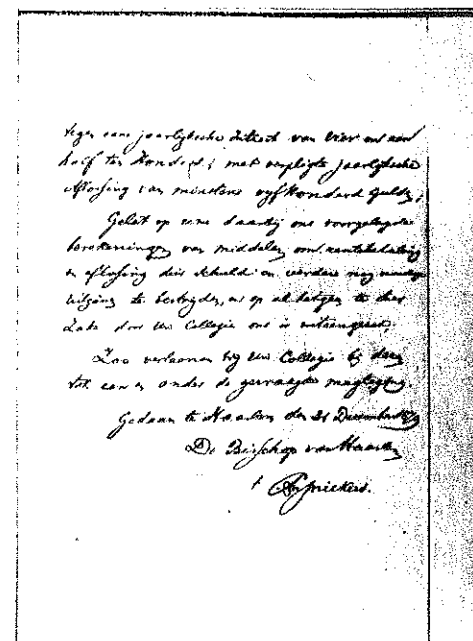 tegen eene jaarlijksche Intrest van vier en een
half ten honderd; met verpligte jaarlijksche
aflossing van minstens vyfhonderd gulden;
Gelet op eene daarbij ons voorgelegde
berekeningen van middelen om rentebetaling
en aflossing dier schuld en verdere nog
uitgaven te bestryden, en op al hetgeen te dier
Zake door Uw Collegie ons is
Zoo verleenen wij Uw Collegie bij deze
tot een en ander de gevraagde magtiging.
Gedaan te Haarlem den 31 December
De Bisschop van Haarlem
†